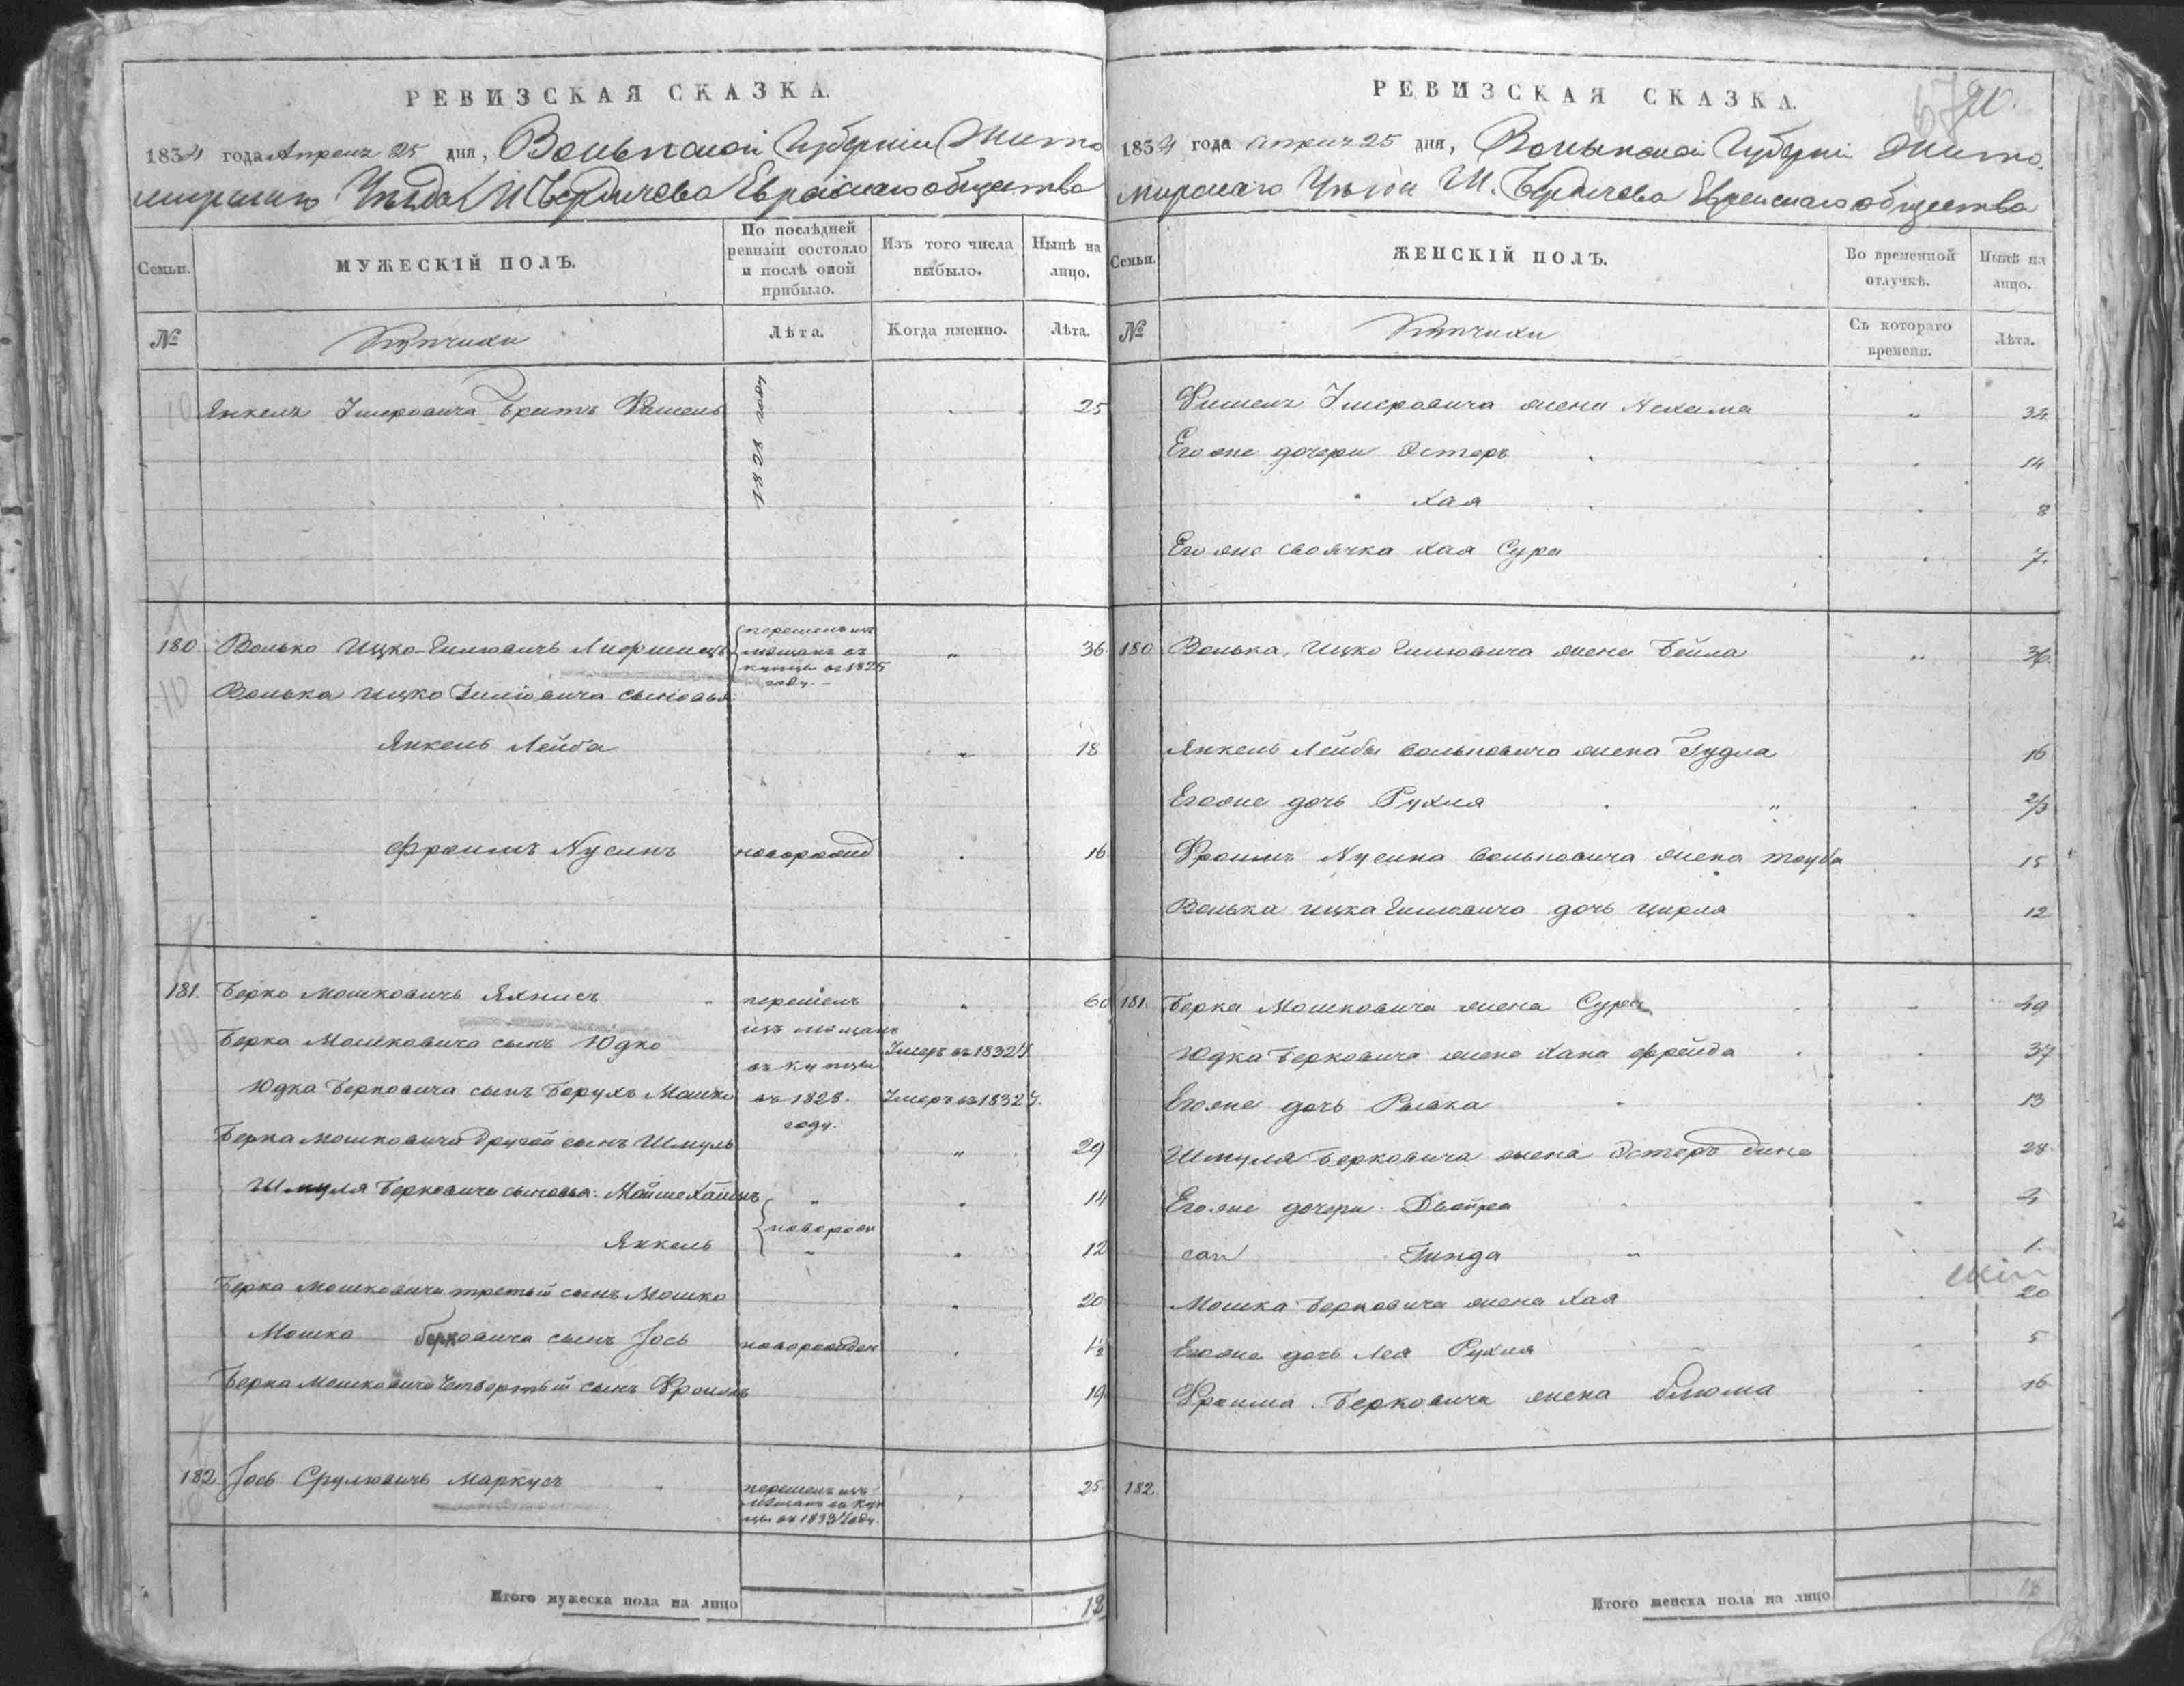 РЕВИЗСКАЯ СКАЗКА.
1834 года Апреля 25 дня, Волынской Губерніи Жито
мирскаго Уезда М Бердичева Еврейскаго общества
Семьи.
МУЖЕСКІЙ ПОЛЪ.
По послѣдней ревизіи состояло и послѣ оной прибыло.
Изъ того числа выбыло.
Нынѣ на лицо.
№
Лѣта.
Когда именно.
Лѣта.
10 Янкеля Умеровича Братъ Фишель 1828 году 25
180. Волько Ицко-Гилювичъ перешелъ изъ мещанъ въ купцы въ 1825 году „ 36
10 Волька Ицко Гилювича сыновья:
Янкель Лейба „ 18
Фроимъ Нусинъ новорожд 16
181. Берко Мошковичъ Яхнисъ „ перешелъ изъ мещанъ въ купцы въ 1828. году. „ 60
Берка Мошковича сынъ Юдко Умеръ въ 1832 г.
Юдка Берковича сынъ Борухъ Мошко Умеръ въ 1832 г.
Берка Мошковича другой сынъ Шмуль „ 29
Шмуля Берковича сыновья: Мойше Хаимъ „ новорож „ 14
Янкель „ „ 12
Берка Мошковича третьій сынъ Мошко „ 20
Мошка берковича сынъ Іось новорожден 1/2
Берка Мошковича Четвертый сынъ Фроимъ 19
182 Іось Срулювичъ Маркусъ „ перешелъ изъ мещанъ въ купцы въ 1833 году. „ 25
Итого мужеска пола на лицо 12
РЕВИЗСКАЯ СКАЗКА.
1834 года Апреля 25 дня, Волынской Губерніи Жито
мирскаго Уезда М. Бердичева Еврейскаго общества
Семьи.
ЖЕНСКІЙ ПОЛЪ.
Во временной отлучкѣ.
Нынѣ на лицо.
№
Съ котораго времени.
Лѣта.
Фишеля Умеровича жена Нехама „ 34
Его же дочери Эстеръ 14
Хая 8
Его же своячка Хая Сура 7.
180 Волька Ицко Гилювича жена Бейла „ 36.
Янкель Лейбы Вольковича жена Гудля 16
Его же дочь Рухля „ 2/3
Фроимъ Нусина Вольковича жена Тауба 15
Волька Ицка Гилювича дочь Цирля 12
181. Берка Мошковича жена Сура 49
Юдка Берковича жена Хана Фрейда 37
Его же дочь Рывка 13
Шмуля Берковича жена Эстеръ Дина 28
Его же дочери: Двойра
Гинда „ 1.
Мошка Берковича жена Хая 20
Его же дочь Лея Рухля 5
Фроима Берковича жена блюма 16
182.
Итого женска пола на лицо 18